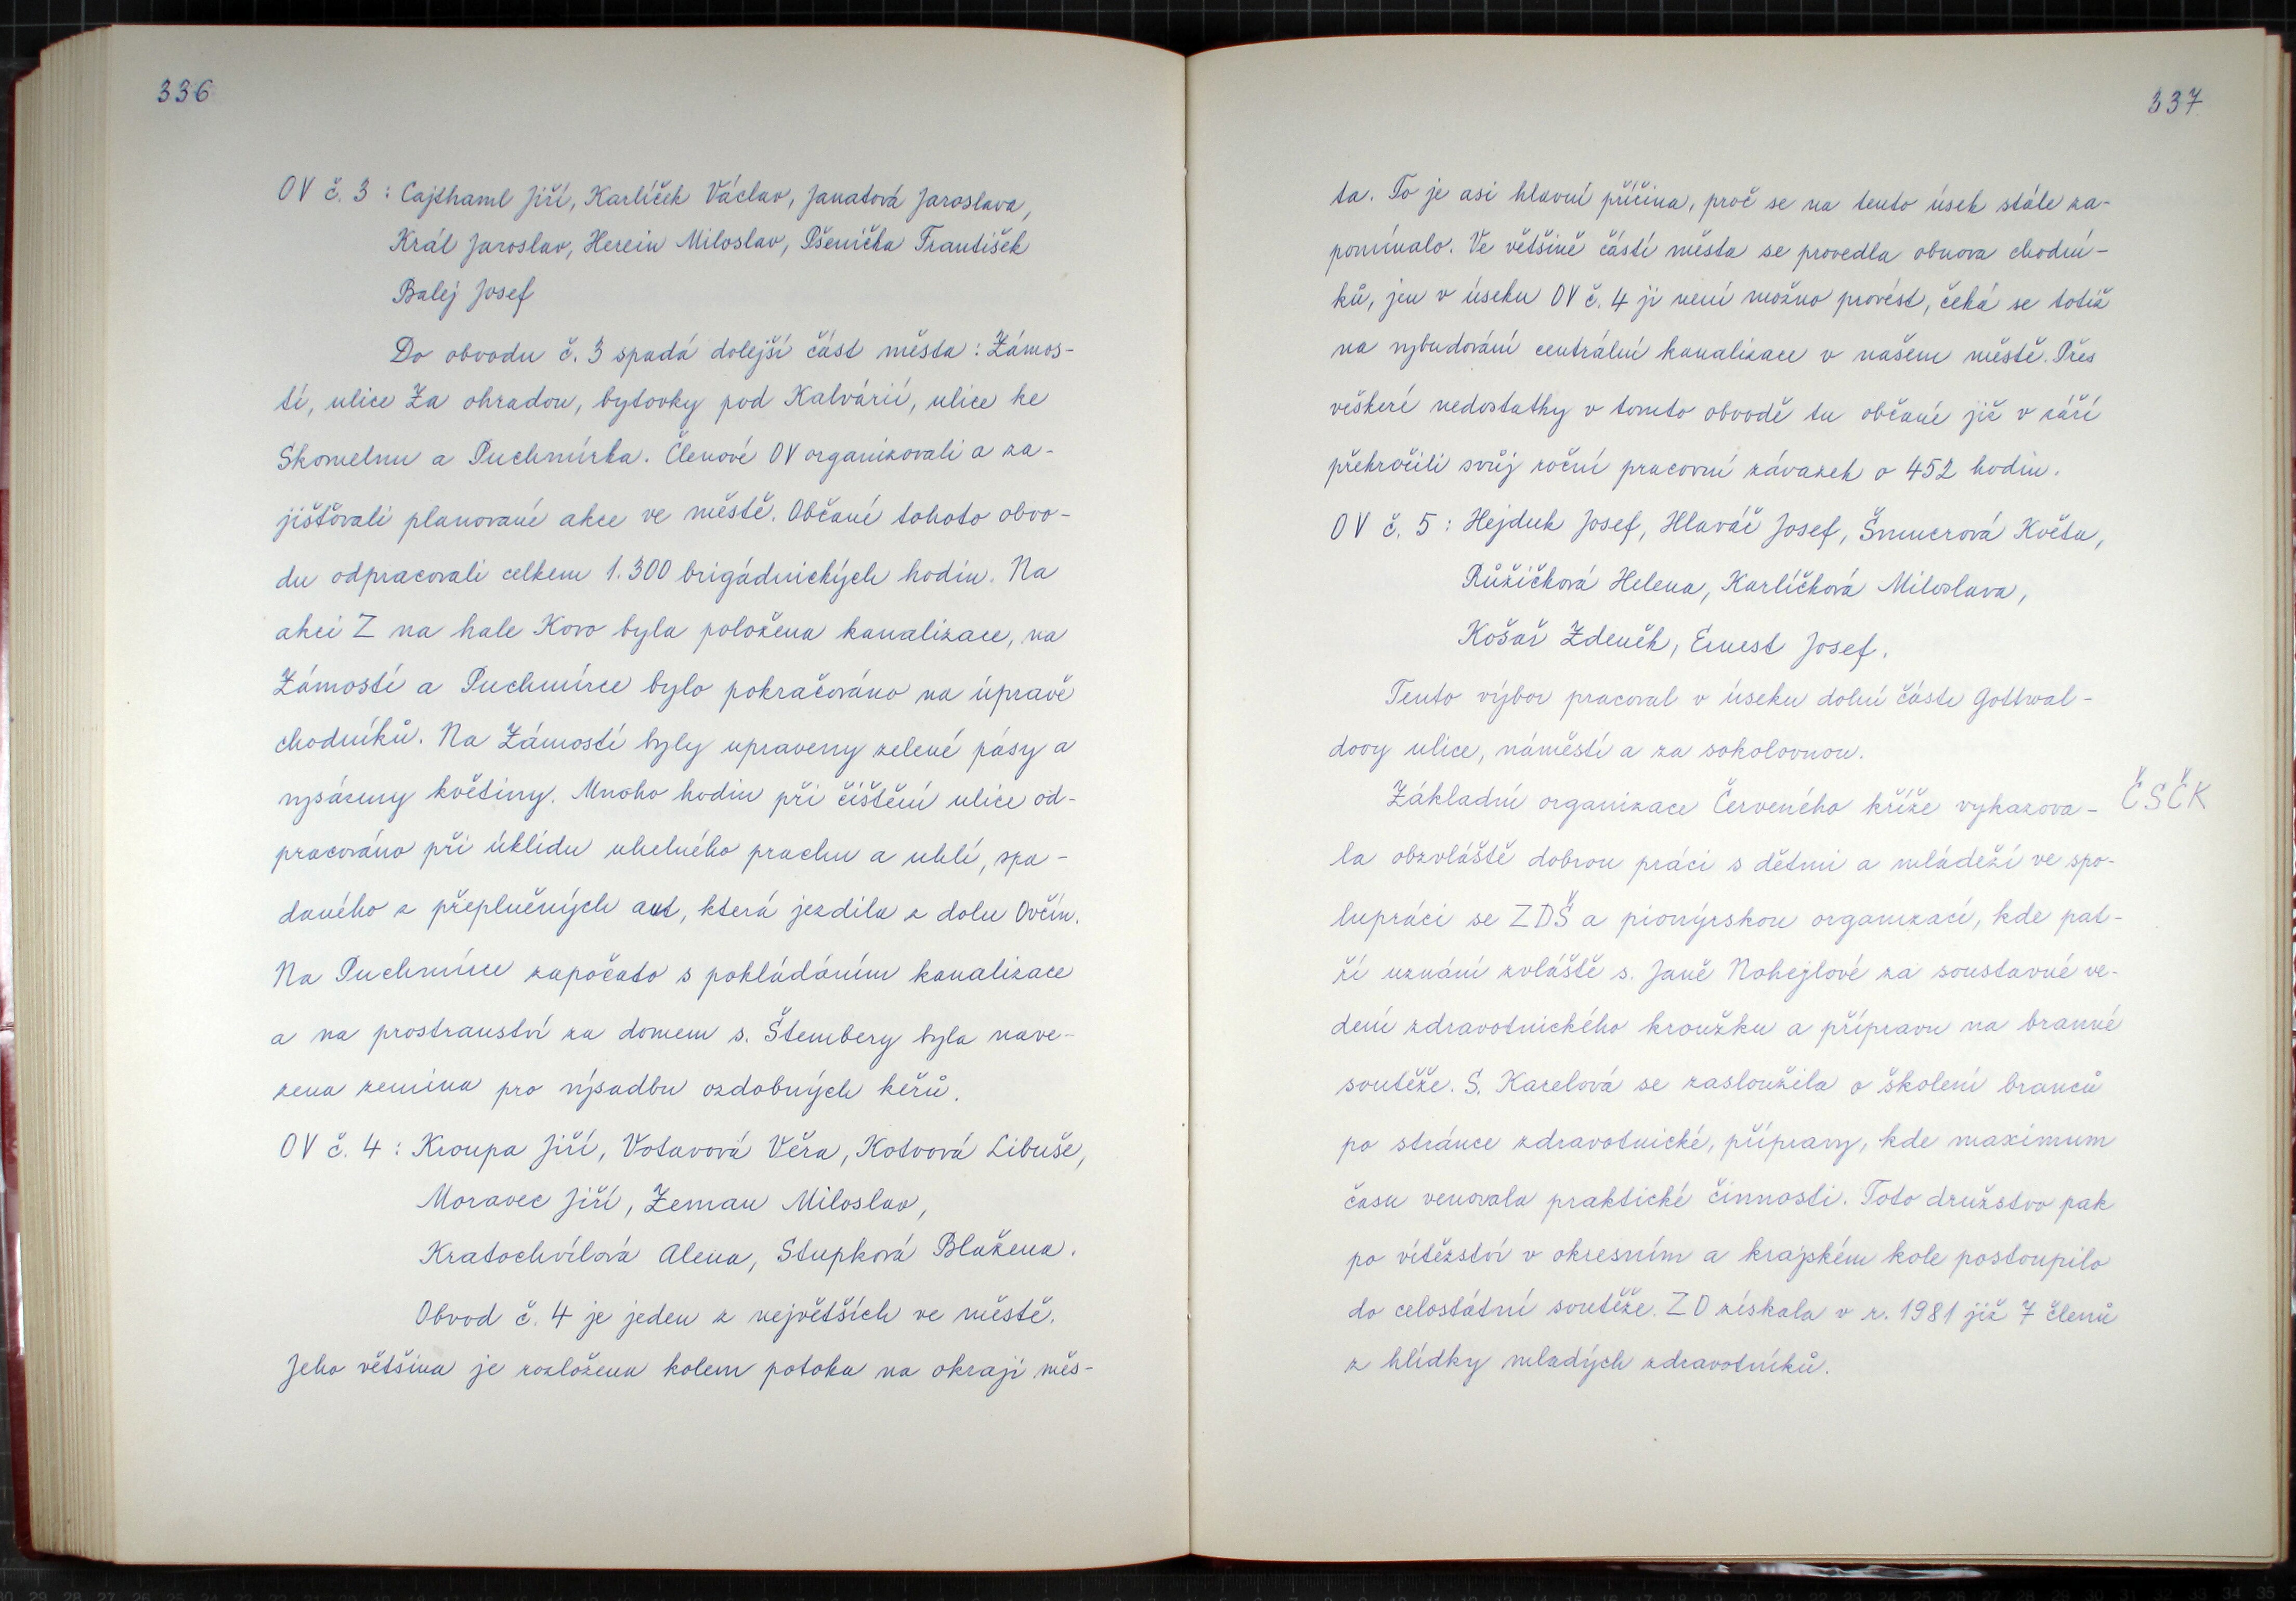 336
OV č. 3 : Cajthaml Jiří, Karlíček Václav, Janatová Jaroslava,
Král Jaroslav, Herein Miloslav, Pšenička František
Balej Josef
Do obvodu č. 3 spadá dolejší část města : Zámos-
tí, ulice Za ohradou, bytovky pod Kalvárií, ulice ke
Skomelnu a Puchmírka. Členové OV organizovali a za-
jišťovali planované akce ve městě. Občané tohoto obvo-
du odpracovali celkem 1.300 brigádnických hodin. Na
akci Z na hale Kovo byla položena kanalizace, na
Zámostí a Puchmírce bylo pokračováno na úpravě
chodníků. Na Zámostí byly upraveny zelené pásy a
vysázeny květiny. Mnoho hodin při čištění ulice od-
pracováno při úklidu uhelného prachu a uhlí, spa-
daného z přeplněných aut, která jezdila z dolu Ovčín.
Na Puchmírce započato s pokládáním kanalizace
a na prostranství za domem s. Štembery byla nave-
zena zemina pro výsadbu ozdobných keřů.
OV č. 4 : Kroupa Jiří, Votavová Věra, Kotvová Libuše,
Moravec Jiří, Zeman Miloslav,
Kratochvílová Alena, Stupková Blažena.
Obvod č. 4 je jeden z největších ve městě.
Jeho většina je rozložena kolem potoka na okraji měs-
337
ta. To je asi hlavní příčina, proč se na tento úsek stále za-
pomínalo. Ve většině částí města se provedla obnova chodní-
ků, jen v úseku OV č. 4 ji není možno provést, čeká se totiž
na vybudování centrální kanalizace v našem městě. Přes
veškeré nedostatky v tomto obvodě tu občané již v září
překročili svůj roční pracovní závazek o 452 hodin.
OV č. 5 : Hejduk Josef, Hlaváč Josef, Šmucrová Květa,
Růžičková Helena, Karlíčková Miloslava,
Košař Zdeněk, Ernest Josef.
Tento výbor pracoval v úseku dolní části Gottwal-
dovy ulice, náměstí a za sokolovnou.
Základní organizace Červeného kříže vykazova-
ČSČK
la obzvláště dobrou práci s dětmi a mládeží ve spo-
lupráci se ZDŠ a pionýrskou organizací, kde pat-
ří uznání zvláště s. Janě Nohejlové za soustavné ve-
dení zdravotnického kroužku a přípravu na branné
soutěže. S. Karelová se zasloužila o školení branců
po stránce zdravotnické, přípravy, kde maximum
času venovala praktické činnosti. Toto družstvo pak
po vítězství v okresním a krajském kole postoupilo
do celostátní soutěže. ZO získala v r. 1981 již 7 členů
z hlídky mladých zdravotníků.